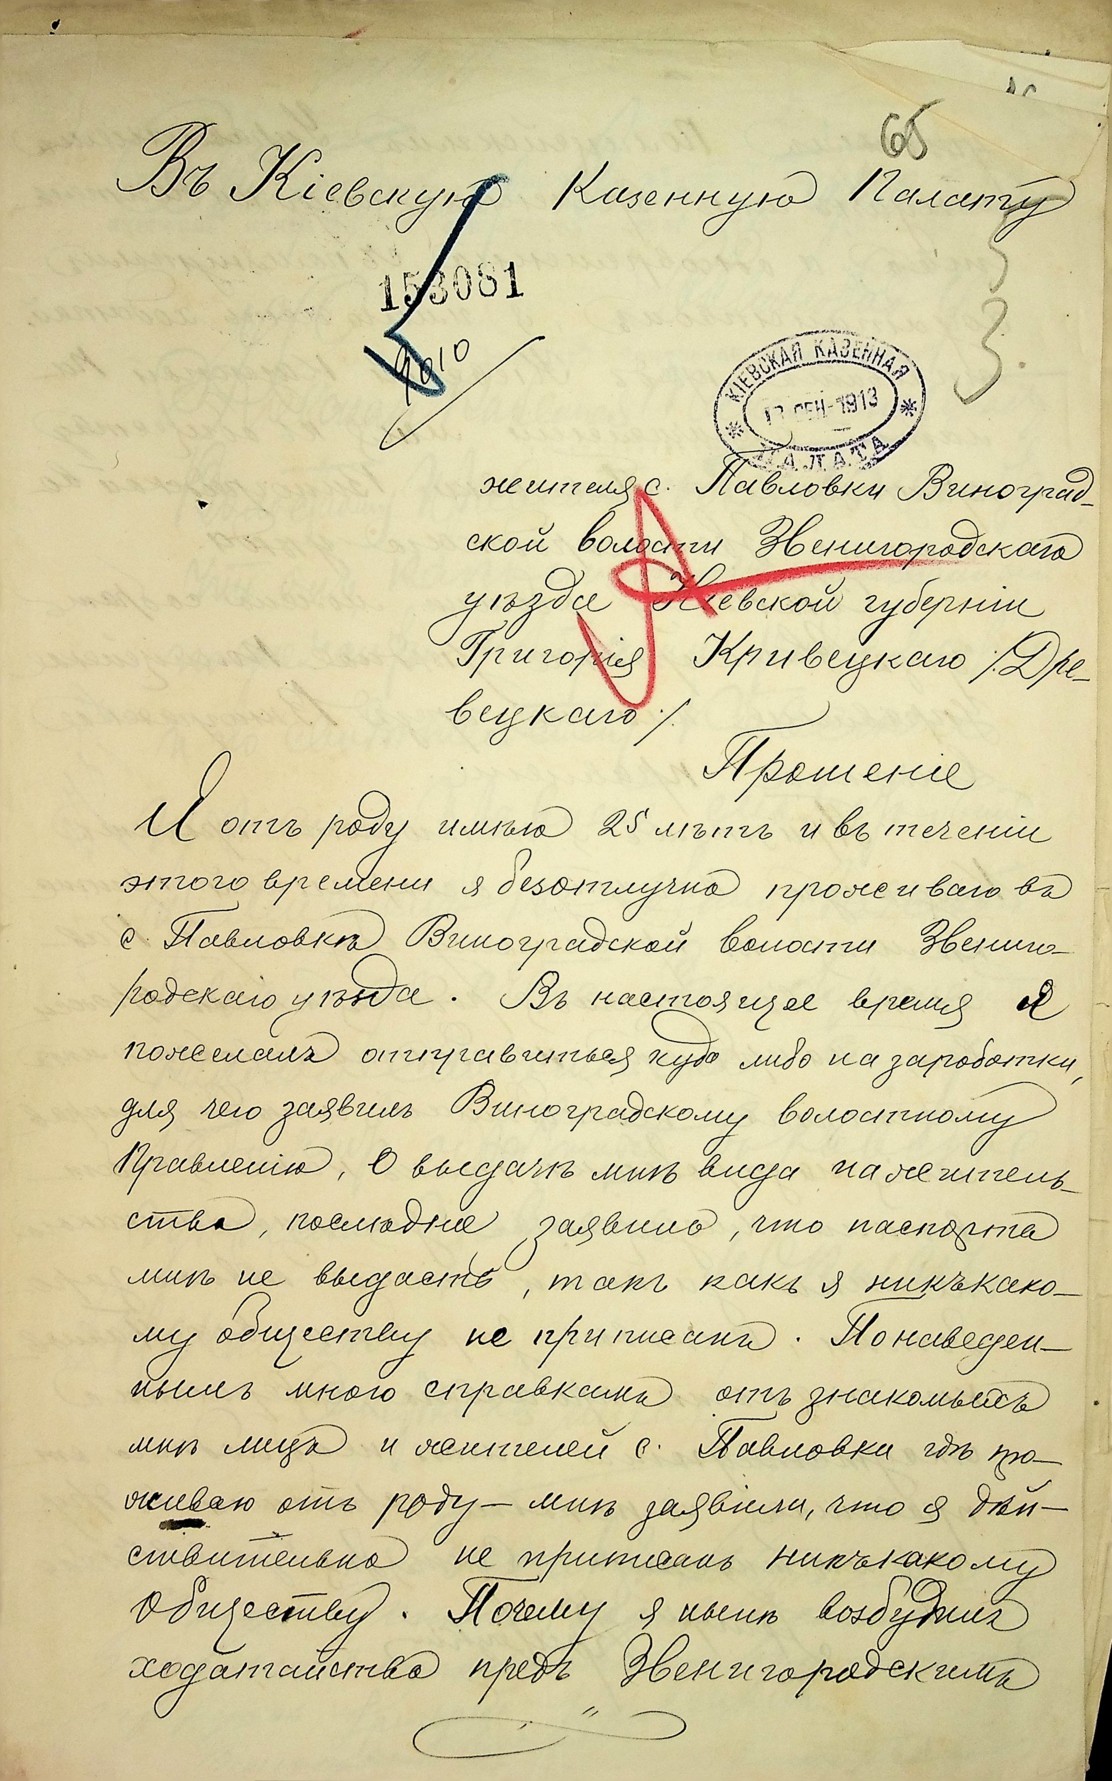 65
Въ Кіевскую Казенную Палату
153081
3.
КІЕВСКАЯ КАЗЕННАЯ
СЕН 1913
ПАЛАТА
жителя с. Павловки Виноград-
ской волости Звенигородскаго
уѣзда Кіевской губерніи
Григорія Кривецкаго /Дре-
вецкаго/.
Прошеніе
Я отъ роду имѣю 25 лѣтъ и въ теченіи
этого времени я безотлучно проживаю въ
с. Павловкѣ Виноградской волости Звениго-
родскаго уѣзда. Въ настоящее время я
пожелалъ отправиться куда либо на заработки,
для чего заявилъ Виноградскому волостному
Правленію, о выдачѣ мнѣ вида на житель-
ство, последнее заявило, что паспорта
мнѣ не выдастъ, такъ какъ я никъкако-
му обществу не приписанъ. По наведен-
нымъ мною справкамъ отъ знакомыхъ
мнѣ лицъ и жителей с. Павловки гдѣ про-
живаю отъ роду — мнѣ заявили, что я дѣй-
ствительно не приписанъ никъкакому
обществу. Почему я нынѣ возбудилъ
ходатайство предъ Звенигородскимъ